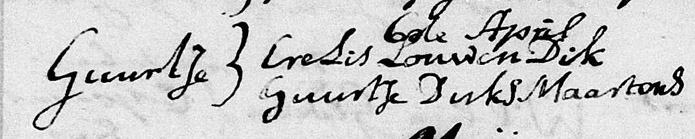 6de April
Guurtje } Crelis Louwen Dik
Guurtje Dirks Maartens